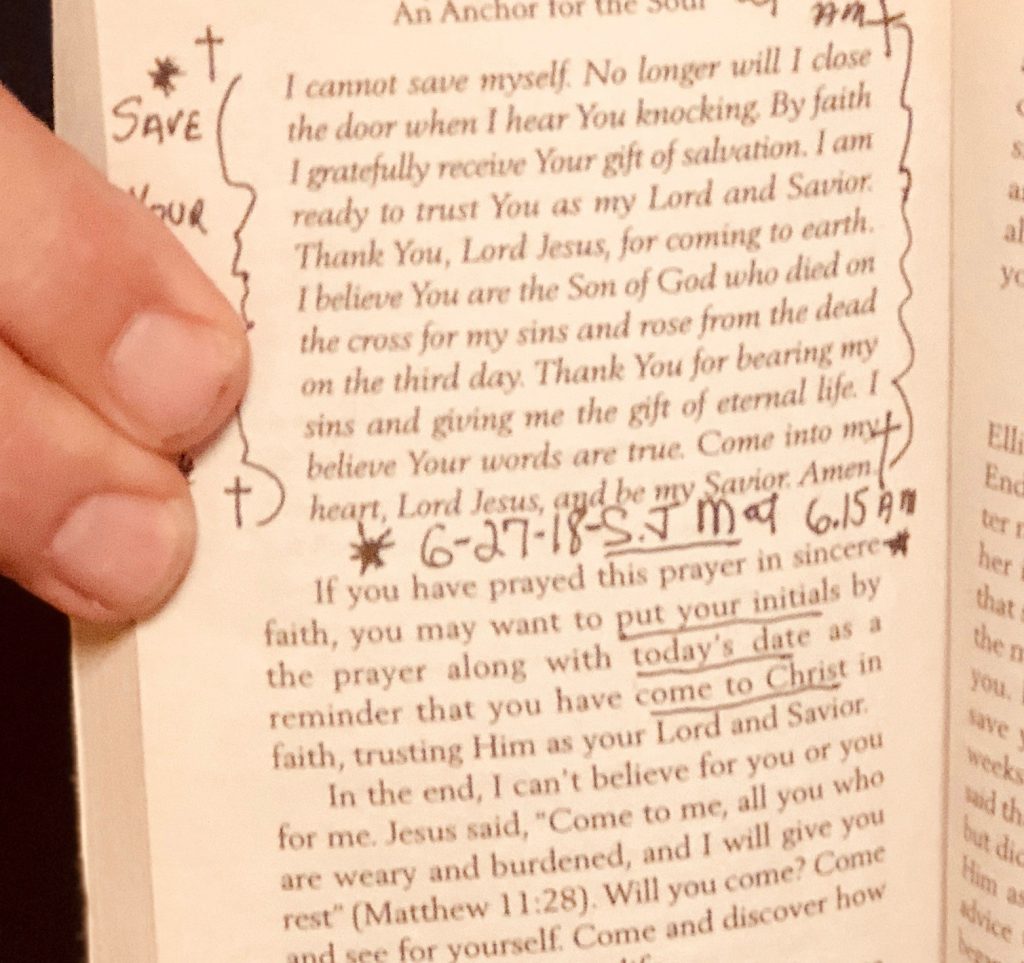 An Anchor for the Soul
AM
SAVE
YOUR
I cannot save myself. No longer will I close
the door when I hear You knocking. By faith
I gratefully receive Your gift of salvation. I am
ready to trust You as my Lord and Savior.
Thank You, Lord Jesus, for coming to earth.
I believe You are the Son of God who died on
the cross for my sins and rose from the dead
on the third day. Thank You for bearing my
sins and giving me the gift of eternal life. I
believe Your words are true. Come into my
heart, Lord Jesus, and be my Savior. Amen.
6-27-18-S.J M at 6.15 AM
If you have prayed this prayer in sincere
faith, you may want to put your initials by
the prayer along with today's date as a
reminder that you have come to Christ in
faith, trusting Him as your Lord and Savior.
In the end, I can't believe for you or you
for me. Jesus said, "Come to me, all you who
are weary and burdened, and I will give you
rest" (Matthew 11:28). Will you come? Come
and see for yourself. Come and discover how
Elli
End
ter
her
that
the
you.
save
weeks
said
but
Him
advice